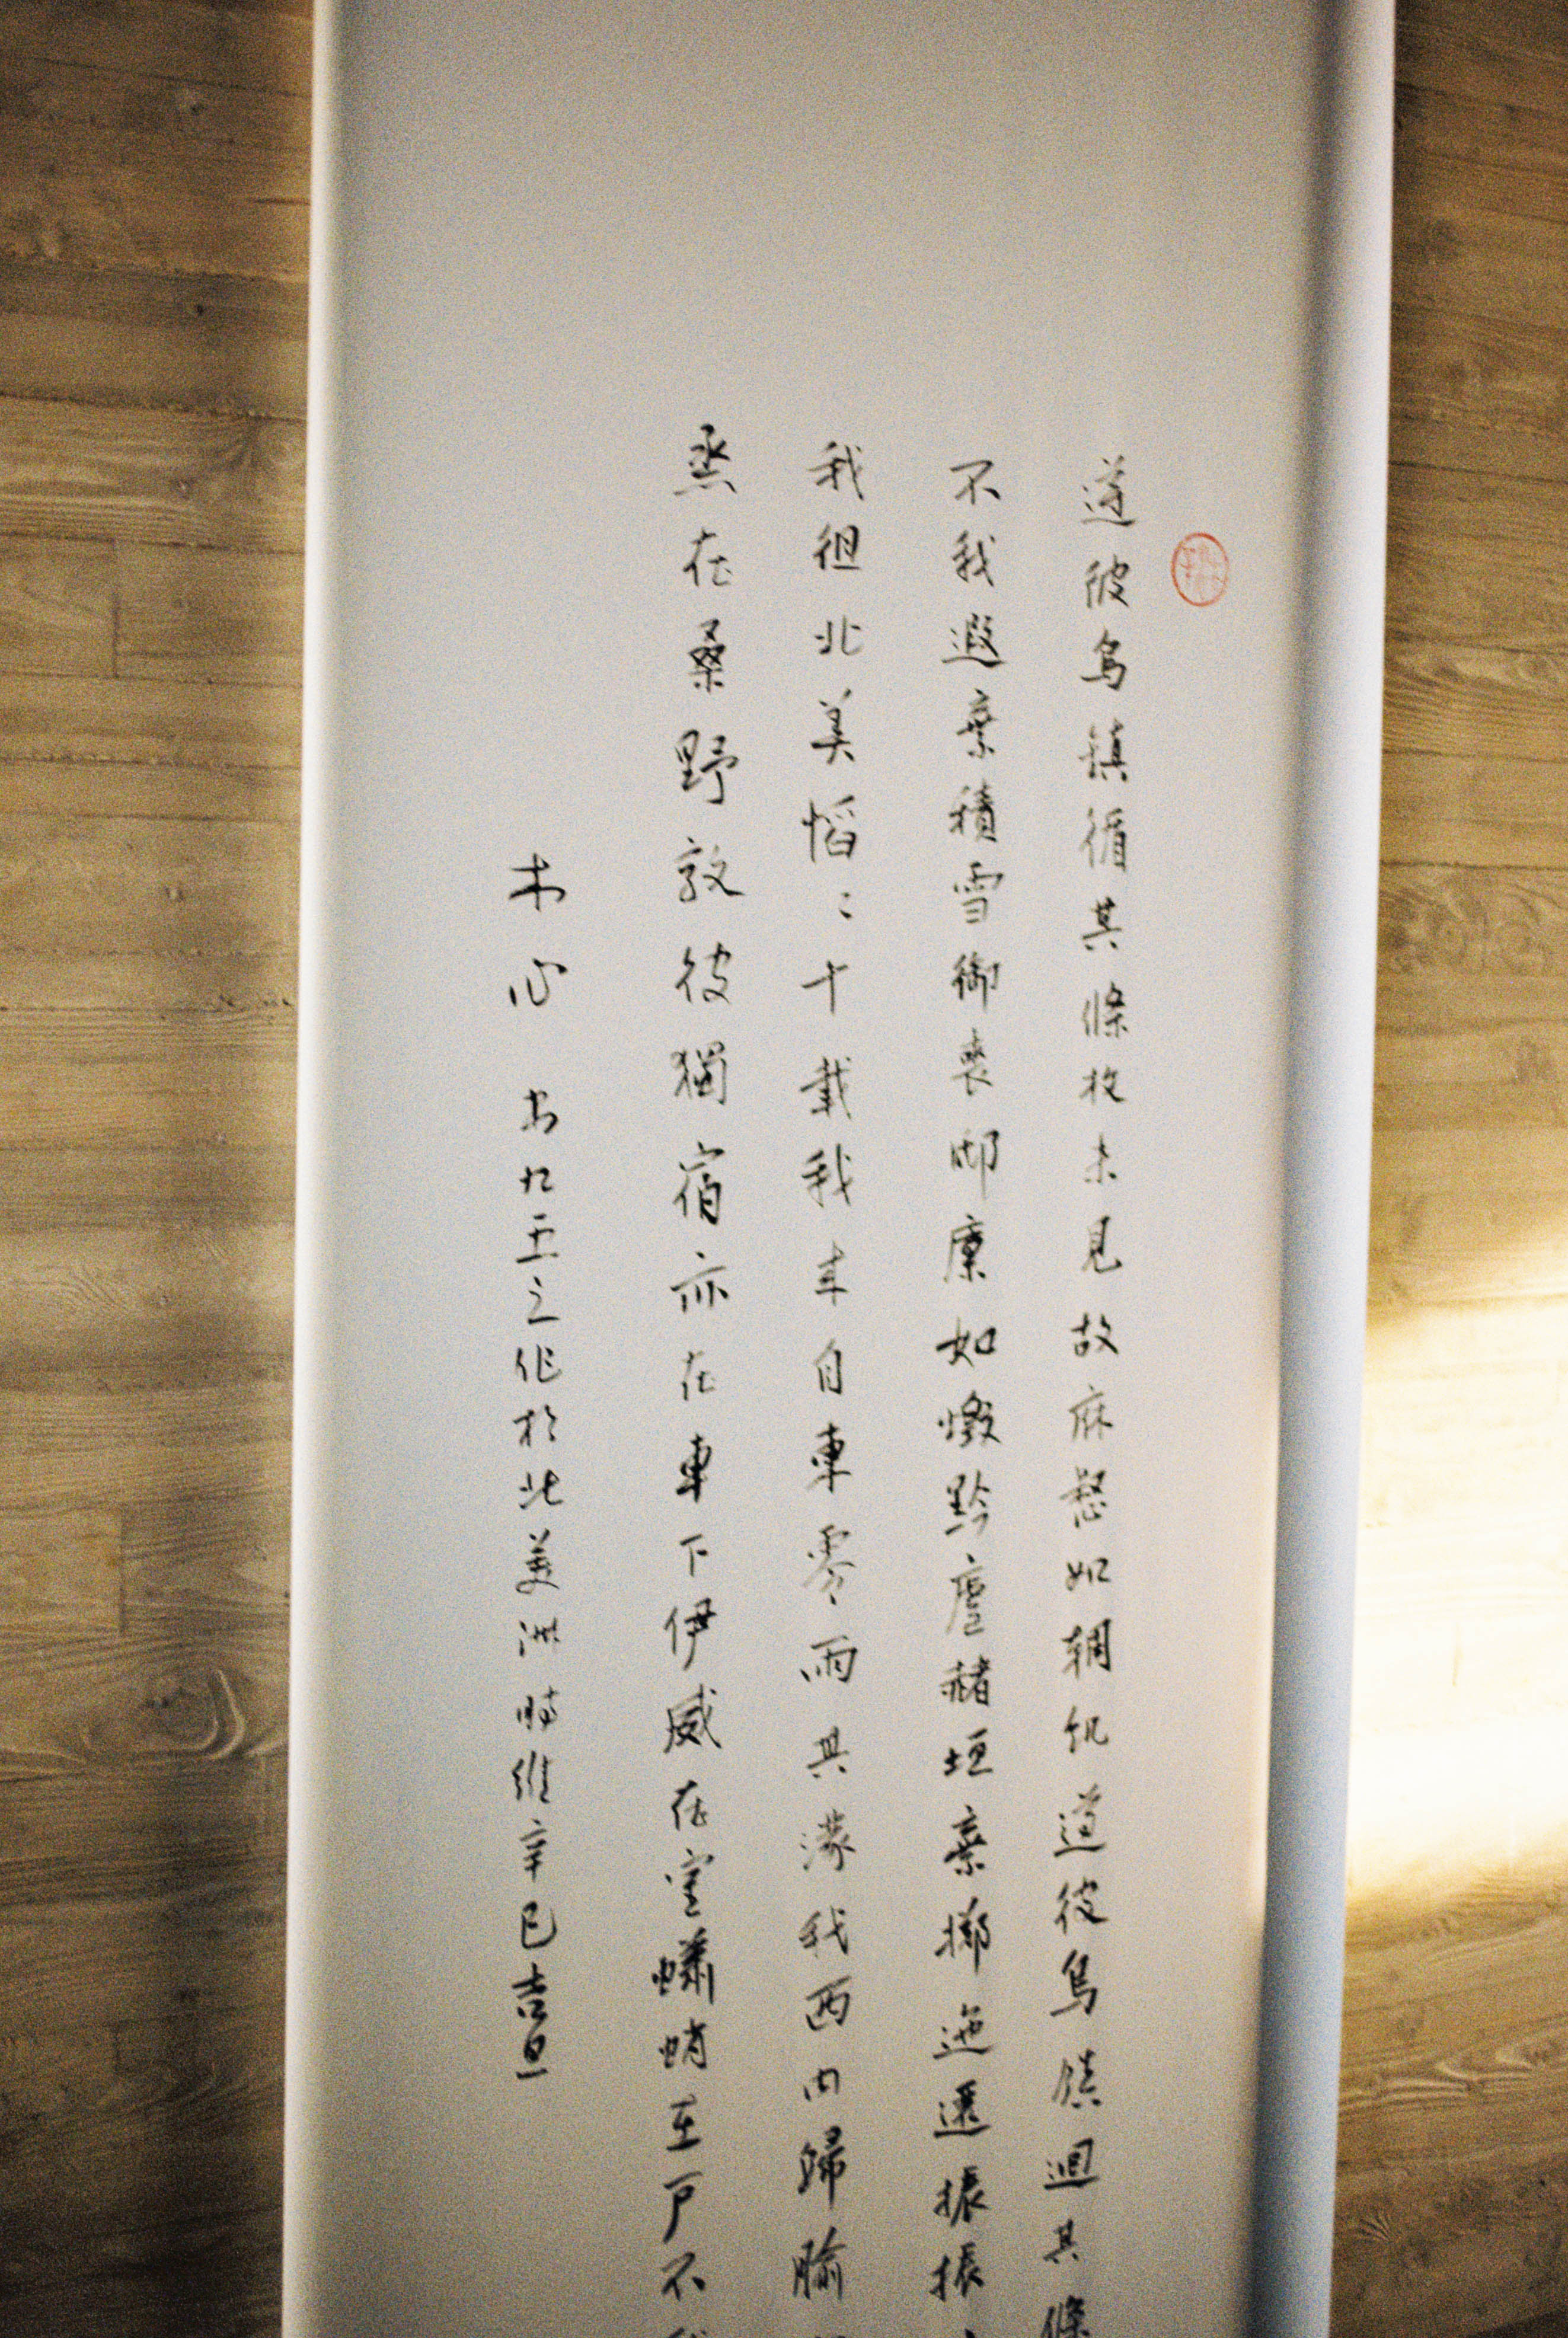 遵彼烏鎮循其條枚未見故麻惄如輖飢遵彼烏鎮迴其條
不我遐棄積雪御喪邸廩如燬黔廬赭垣棄擲迤邐振振
我徂北美慆〻十載我來自東零雨其濛我西內歸腧
烝在桑野敦彼獨宿亦在車下伊威在室蠨蛸在戶不我
木心 书九五之作於北美洲時維辛巳吉旦